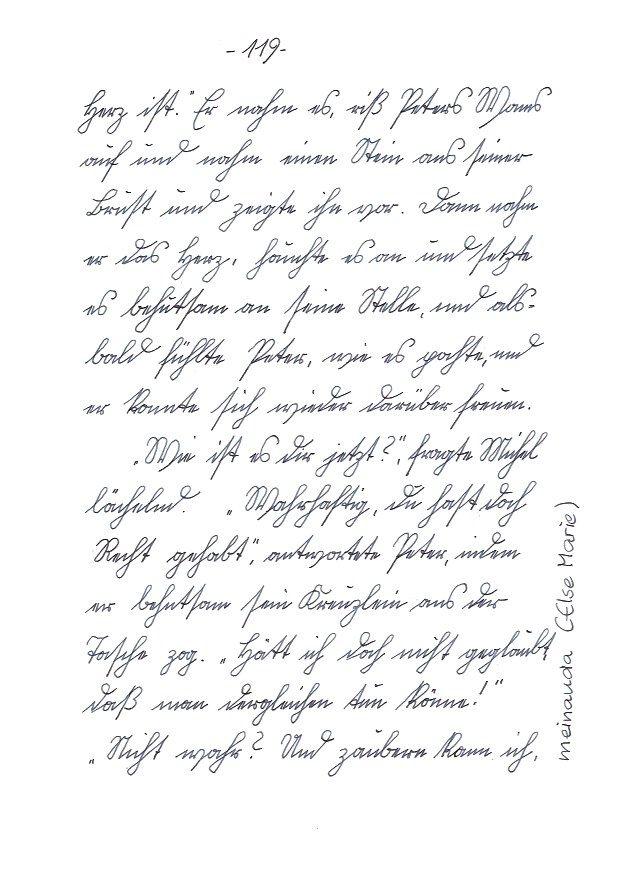 -119-
Herz ist." Er nahm es, riß Peters Wams
auf und nahm einen Stein aus seiner
Brust und zeigte ihn vor. Dann nahm
er das Herz, hauchte es an und setzte
es behutsam an seine Stelle, und als-
bald fühlte Peter, wie es pochte, und
er konnte sich wieder darüber freuen.
„Wie ist es dir jetzt?", fragte Michel
lächelnd. „Wahrhaftig, du hast doch
Recht gehabt", antwortete Peter, indem
er behutsam sein Kreuzlein aus der
Tasche zog. „Hätt ich doch nicht geglaubt,
daß man dergleichen tun könne!"
„Nicht wahr? Und zaubern kann ich,
meinauda (Else Marie)